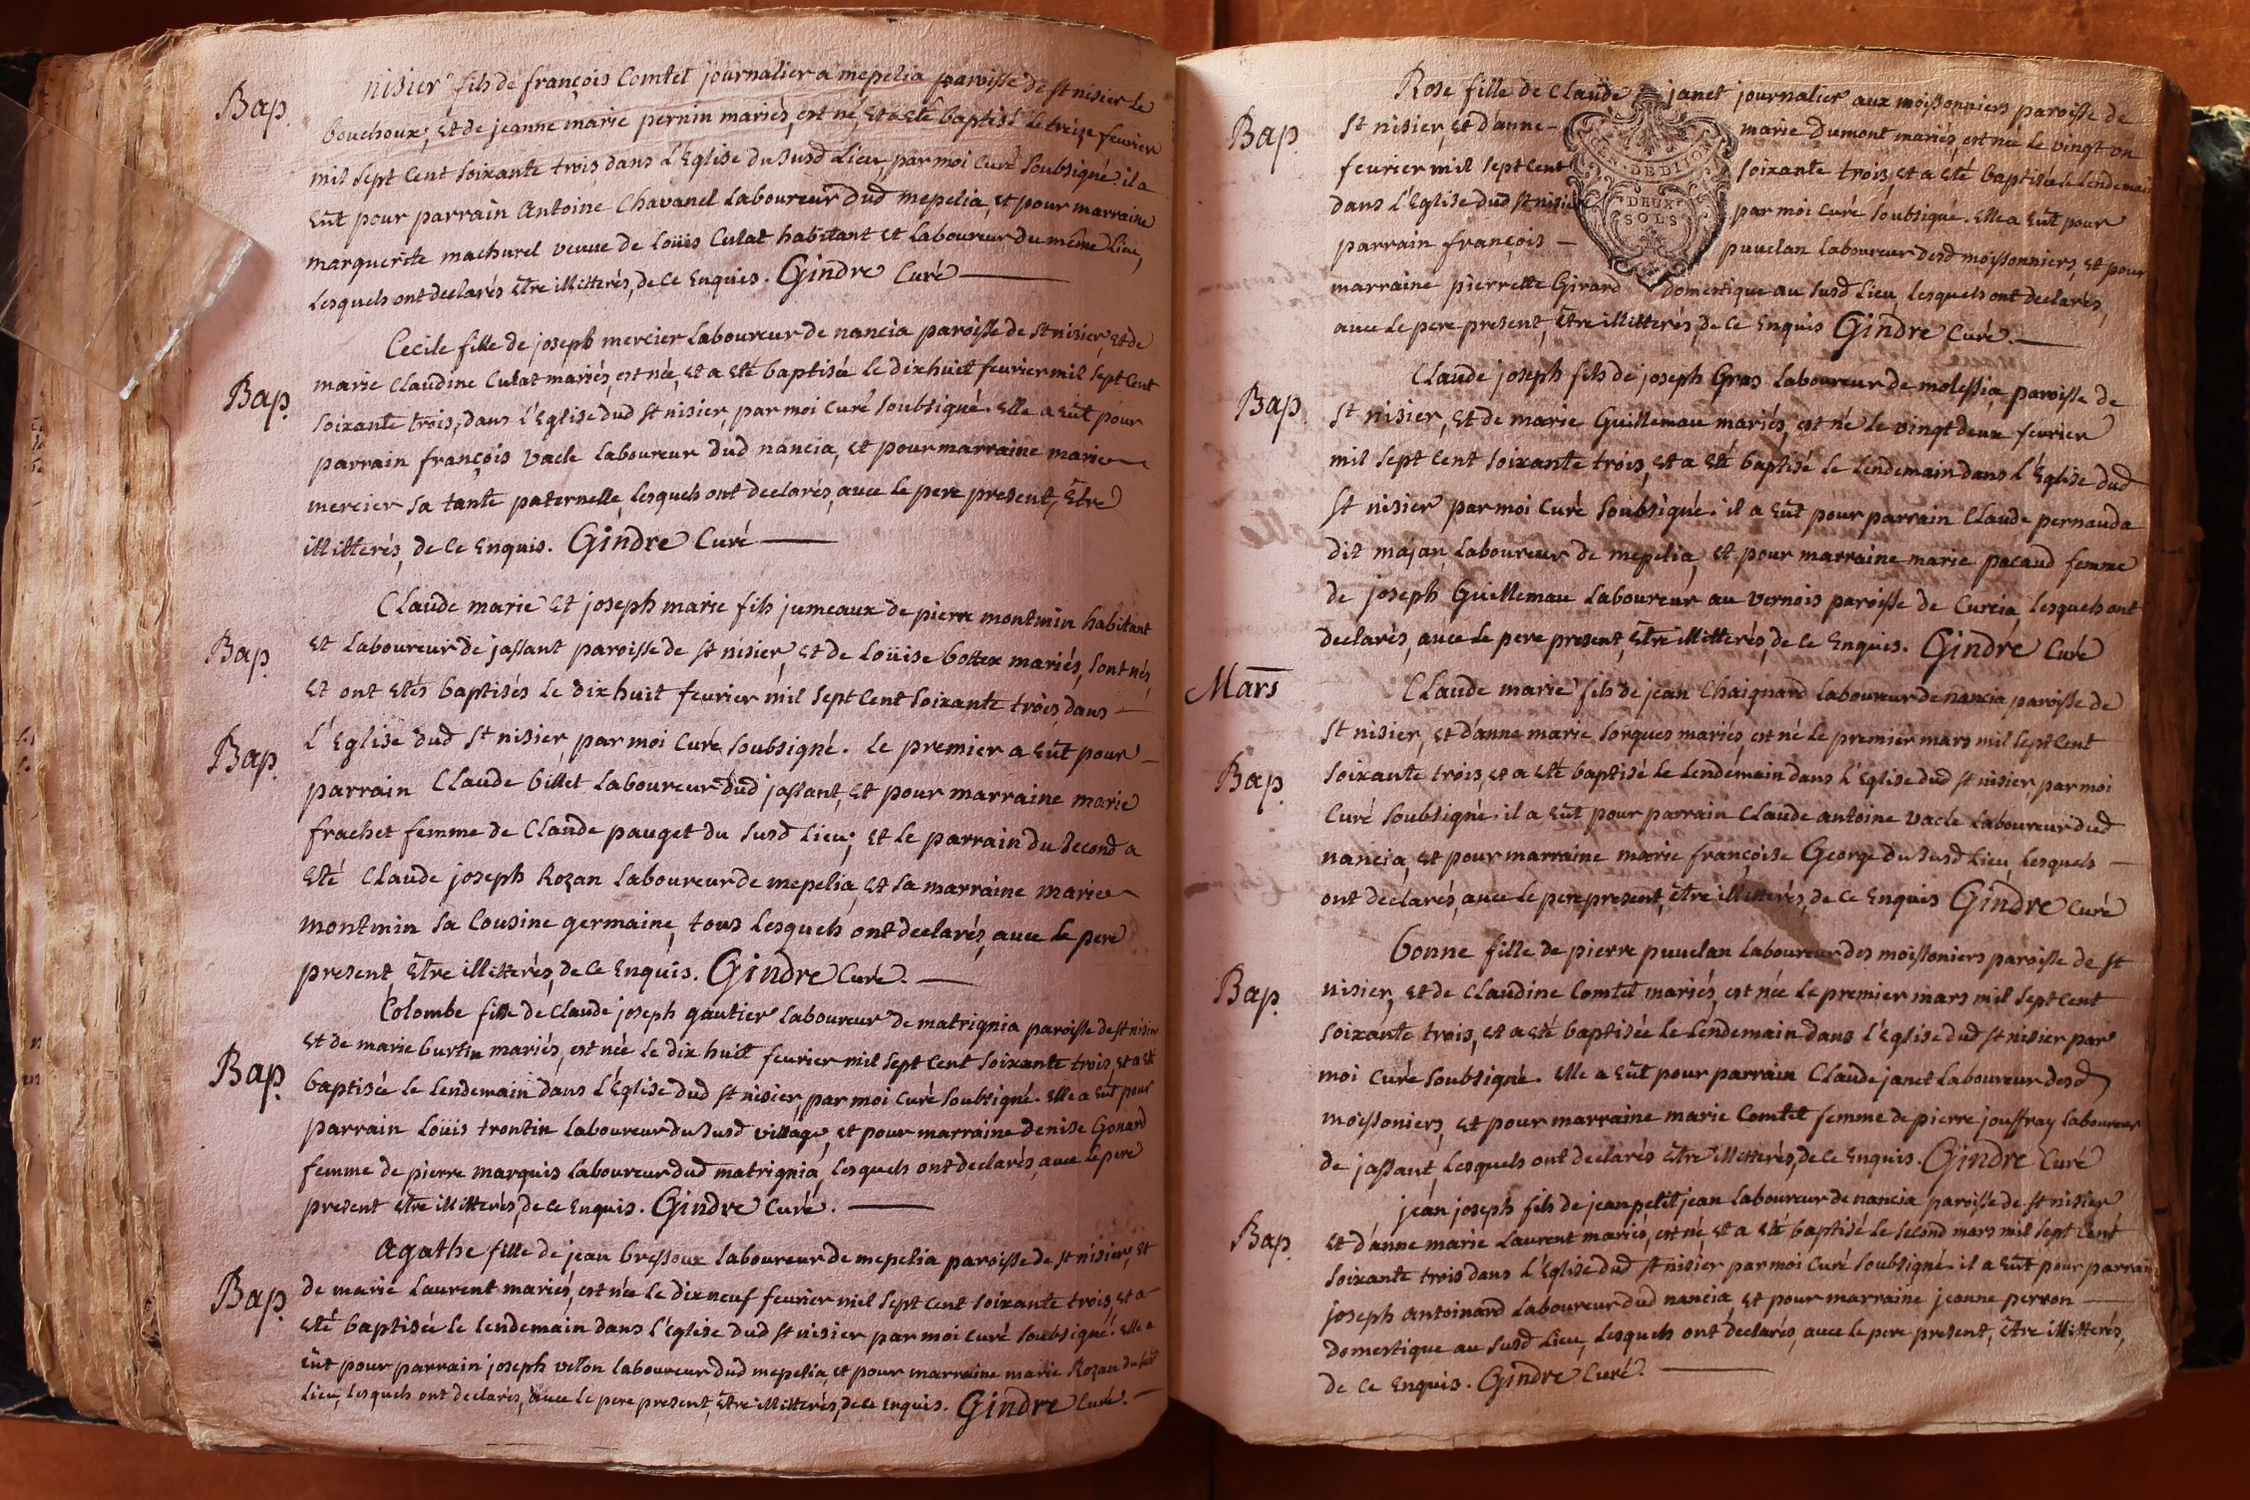 Bap.
nisier fils de françois Comtet journalier a mepelia paroisse de st nisier le
bouchoux; et de jeanne marie pernin mariés, est né, et a eté baptisé le treize fevrier
mil sept cent soixante trois dans l'Eglise du susd lieu, par moi Curé soubsigné. il a
eüt pour parrain Antoine Chavanel laboureur dud mepelia, et pour marraine
marguerite machurel veuve de loüis Culat habitant et laboureur du même lieu,
lesquels ont declarés être illitterés, de ce enquis. Gindre Curé
Bap.
Cecile fille de joseph mercier laboureur de nancia paroisse de st nisier, et de
marie claudine Culat mariés, est née, et a eté baptisée le dixhuit fevrier mil sept cent
soixante trois, dans l'Eglise dud st nisier, par moi curé soubsigné. elle a eüt pour
parrain françois vacle laboureur dud nancia, et pour marraine marie
mercier sa tante paternelle, lesquels ont declarés, avec le pere present, être
illitterés, de ce enquis. Gindre Curé
Bap.
Claude marie et joseph marie fils jumeaux de pierre montmin habitant
et laboureur de jassant paroisse de st nisier, et de loüise bottex mariés, sont nés,
et ont etés baptisés le dixhuit fevrier mil sept cent soixante trois, dans
Bap.
l'Eglise dud st nisier, par moi curé soubsigné. le premier a eüt pour
parrain Claude billet laboureur dud jassant, et pour marraine marie
frachet femme de Claude pauget du susd lieu; et le parrain du second a
eté Claude joseph Rozan laboureur de mepelia, et sa marraine marie
montmin sa cousine germaine, tous lesquels ont declarés, avec le pere
present, être illitterés, de ce enquis. Gindre Curé.
Bap.
Colombe fille de claude joseph gautier laboureur de matrignia paroisse de st nisier
et de marie burtin mariés, est née le dix huit fevrier mil sept cent soixante trois, et a eté
baptisée le lendemain dans l'Eglise dud st nisier, par moi curé soubsigné. elle a eüt pour
parrain loüis trontin laboureur du susd village, et pour marraine denise Gonard
femme de pierre marquis laboureur dud matrignia, lesquels ont declarés, avec le pere
present être illitterés, de ce enquis. Gindre Curé.
Bap.
Agathe fille de jean bressoux laboureur de mepelia paroisse de st nisier, et
de marie laurent mariés, est née le dixneuf fevrier mil sept cent soixante trois, et a
eté baptisée le lendemain dans l'eglise dud st nisier par moi curé soubsigné. elle a
eüt pour parrain joseph veton laboureur dud mepelia, et pour marraine marie Rozan du susd
lieu, lesquels ont declarés, avec le pere present, être illitterés, de ce enquis. Gindre Curé.
Bap.
Rose fille de claude janet journalier aux moissonniers paroisse de
st nisier, et d'anne marie dumont mariés, est née le vingt un
fevrier mil sept cent soixante trois, et a eté baptisée le lendemain
dans l'Eglise dud st nisier par moi curé soubsigné. elle a eüt pour
parrain françois puvelan laboureur desd moissonniers, et pour
marraine pierrette Girard domestique au susd lieu, lesquels ont declarés,
avec le pere present, être illitterés, de ce enquis Gindre Curé.
GEN. DE DIJON
DEUX
SOLS
Bap.
Claude joseph fils de joseph Gras laboureur de molessia paroisse de
st nisier, et de marie Guillemau mariés, est né le vingt deux fevrier
mil sept cent soixante trois, et a eté baptisé le lendemain dans l'Eglise dud
st nisier par moi curé soubsigné. il a eüt pour parrain Claude pernauda
dit majan laboureur de mepelia, et pour marraine marie pacaud femme
de joseph Guillemau laboureur au vernois paroisse de Curcia, lesquels ont
declarés, avec le pere present, être illitterés, de ce enquis. Gindre Curé
Mars
Claude marie fils de jean Chaignard laboureur de nancia paroisse de
st nisier, et d'anne marie sorques mariés, est né le premier mars mil sept cent
Bap.
soixante trois, et a eté baptisé le lendemain dans l'Eglise dud st nisier, par moi
curé soubsigné. il a eüt pour parrain Claude antoine vacle laboureur dud
nancia, et pour marraine marie françoise George du susd lieu, lesquels
ont declarés, avec le pere present, être illitterés, de ce enquis Gindre Curé
Bap.
bonne fille de pierre puvelan laboureur des moissoniers paroisse de st
nisier, et de claudine Comtet mariés, est née le premier mars mil sept cent
soixante trois, et a eté baptisée le lendemain dans l'Eglise dud st nisier par
moi curé soubsigné. elle a eüt pour parrain Claude janet laboureur desd
moissoniers, et pour marraine marie Comtet femme de pierre jouffray laboureur
de jassant, lesquels ont declarés être illitterés, de ce enquis. Gindre Curé
Bap.
jean joseph fils de jean petitjean laboureur de nancia paroisse de st nisier
et d'anne marie laurent mariés, est né, et a eté baptisé le second mars mil sept cent
soixante trois dans l'Eglise dud st nisier par moi curé soubsigné. il a eüt pour parrain
joseph antoinard laboureur dud nancia, et pour marraine jeanne perron
domestique au susd lieu, lesquels ont declarés, avec le pere present, être illitterés,
de ce enquis. Gindre Curé.